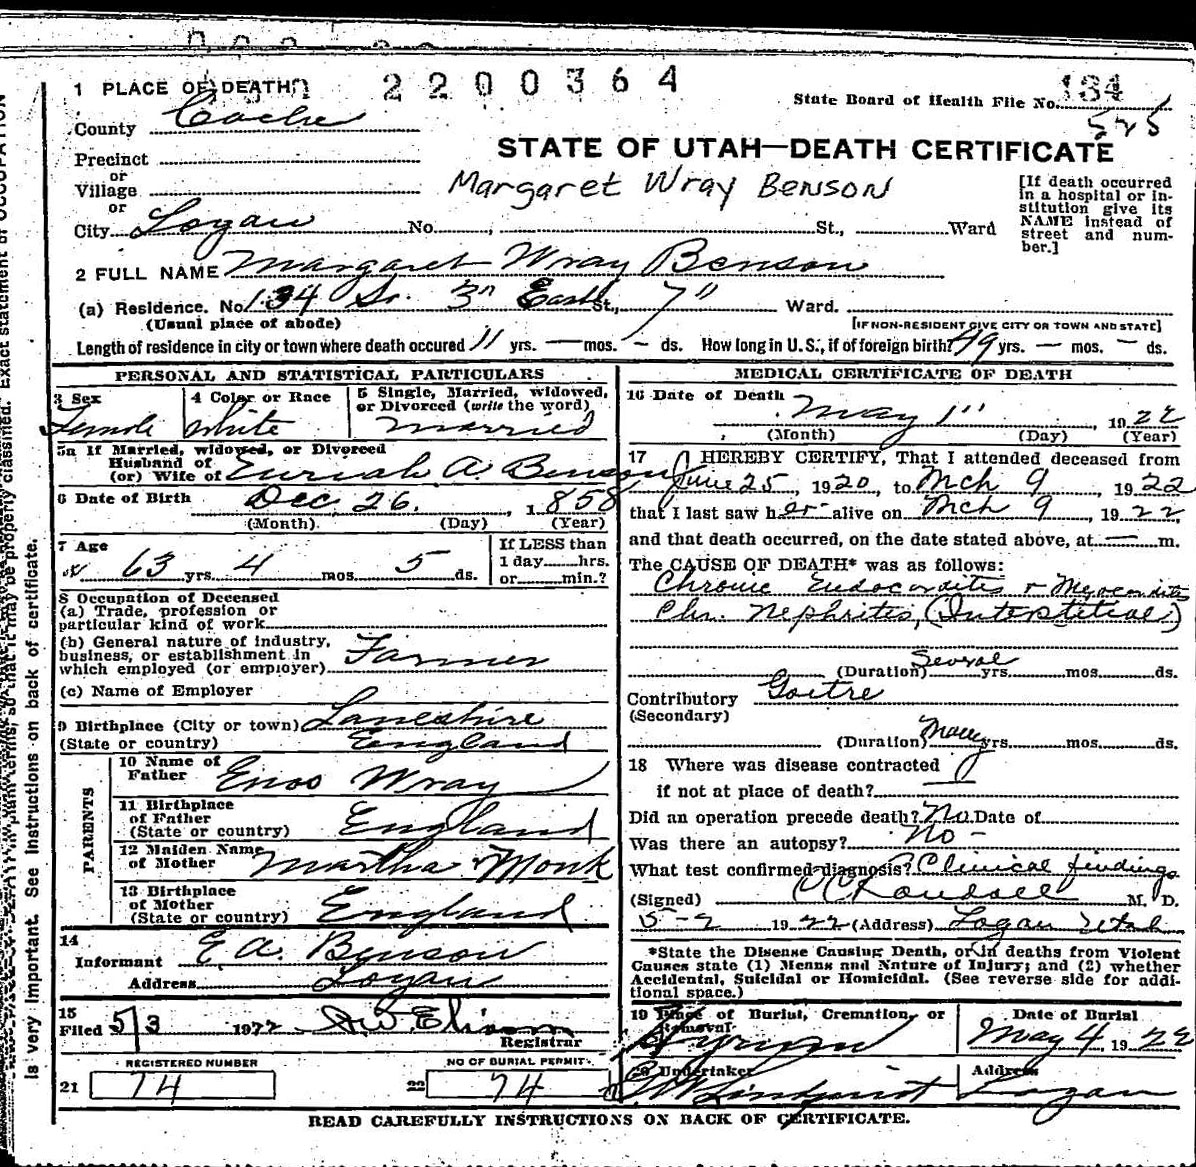 1 PLACE OF DEATH
2200364
State Board of Health File No. 134
525
County Cache
STATE OF UTAH—DEATH CERTIFICATE
Precinct
or
Village
Margaret Wray Benson
[If death occurred in a hospital or in-
stitution give its NAME instead of
street and num-
ber.]
or
City Logan No. , St., Ward
2 FULL NAME Margaret Wray Benson
(a) Residence. No. 134 So. 3rd East St., 7" Ward.
(Usual place of abode) [IF NON-RESIDENT GIVE CITY OR TOWN AND STATE]
Length of residence in city or town where death occured 11 yrs. — mos. - ds. How long in U.S., if of foreign birth? 49 yrs. — mos. - ds.
PERSONAL AND STATISTICAL PARTICULARS
3 Sex 4 Color or Race 5 Single, Married, widowed,
or Divorced (write the word)
Female White Married
5a If Married, widowed, or Divorced
Husband of
(or) Wife of A. Benson
6 Date of Birth Dec. 26. , 1858
(Month) (Day) (Year)
7 Age If LESS than
63 yrs. 4 mos. 5 ds. 1 day hrs.
or min.?
8 Occupation of Deceased
(a) Trade, profession or
particular kind of work
(b) General nature of industry,
business, or establishment in
which employed (or employer) Farmer
(c) Name of Employer
9 Birthplace (City or town) Laneshire
(State or country) England
PARENTS
10 Name of
Father Enos Wray
11 Birthplace
of Father
(State or country) England
12 Maiden Name
of Mother Martha Monk
13 Birthplace
of Mother
(State or country) England
14
Informant E A. Benson
Address Logan
15
Filed 5/3 1922
Registrar
REGISTERED NUMBER NO OF BURIAL PERMIT
21 74 22 74
MEDICAL CERTIFICATE OF DEATH
16 Date of Death
May 1" , 1922
(Month) (Day) (Year)
17 I HEREBY CERTIFY, That I attended deceased from
June 25, 1920, to Mch 9 1922
that I last saw her alive on Mch 9, 1922,
and that death occurred, on the date stated above, at — m.
The CAUSE OF DEATH* was as follows:
Chronic Endocarditis & Myocarditis
Chr. Nephrites, (Interstitial)
(Duration) Several yrs. mos. ds.
Contributory Goitre
(Secondary)
(Duration) Many yrs. mos. ds.
18 Where was disease contracted
if not at place of death?
Did an operation precede death? No. Date of
Was there an autopsy? No -
What test confirmed diagnosis? Clinical findings
(Signed) Randall M. D.
5-2 1922 (Address) Logan Utah
*State the Disease Causing Death, or in deaths from Violent
Causes state (1) Means and Nature of Injury; and (2) whether
Accidental, Suicidal or Homicidal. (See reverse side for addi-
tional space.)
19 Place of Burial, Cremation, or Date of Burial
Removal
Hyrum May 4, 1922
20 Undertaker Address
Lindquist Logan
READ CAREFULLY INSTRUCTIONS ON BACK OF CERTIFICATE.
is very important. See Instructions on back of certificate.
so that it may be properly classified. Exact statement of OCCUPATION